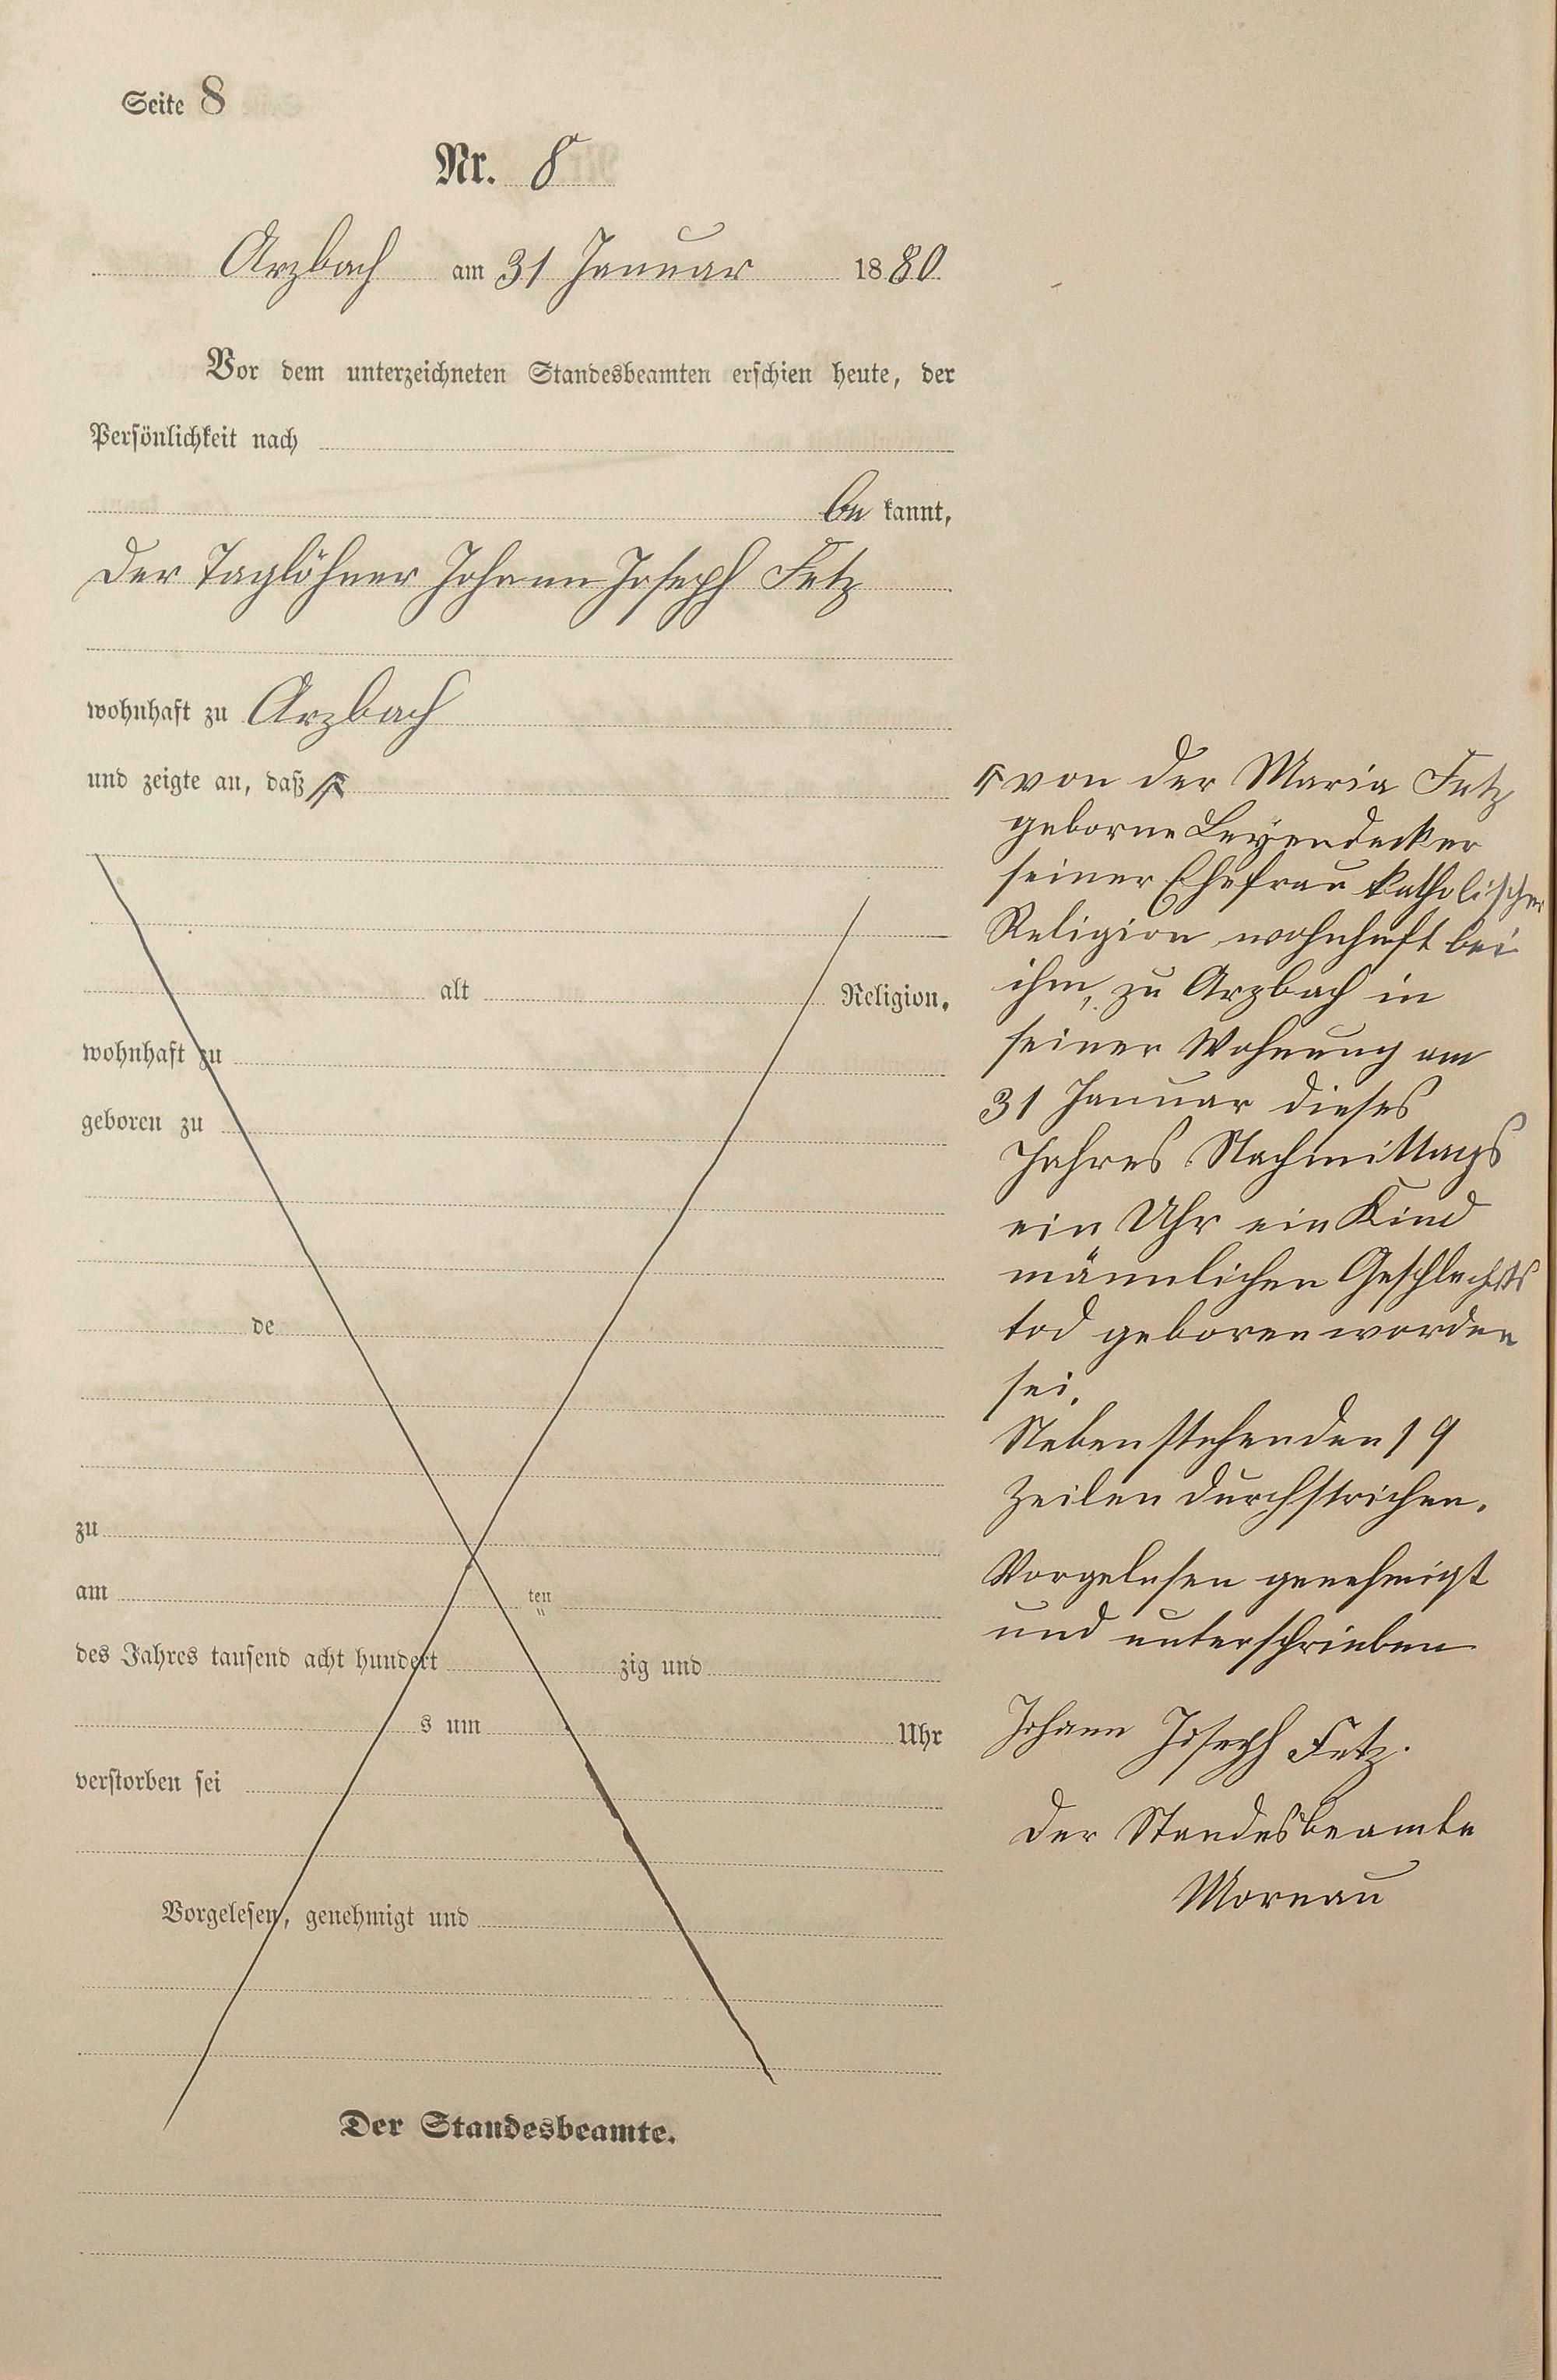 Seite 8
Nr. 8
Arzbach am 31 Januar 1880
Vor dem unterzeichneten Standesbeamten erschien heute, der
Persönlichkeit nach
be kannt,
der Taglöhner Johann Joseph Fetz
wohnhaft zu Arzbach
und zeigte an, daß
alt Religion,
wohnhaft zu
geboren zu
de
zu
am ten
des Jahres tausend acht hundert zig und
s um Uhr
verstorben sei
Vorgelesen, genehmigt und
Der Standesbeamte.
von der Maria Fetz
geborne Leyendecker
seiner Ehefrau katholischer
Religion wohnhaft bei
ihm, zu Arzbach in
seiner Wohnung am
31 Januar dieses
Jahres Nachmittags
ein Uhr ein Kind
männlichen Geschlechts
tod geboren worden
sei.
Nebenstehenden 19
Zeilen durchstrichen.
Vorgelesen genehmigt
und unterschrieben
Johann Joseph Fetz.
Der Standesbeamte
Moreau